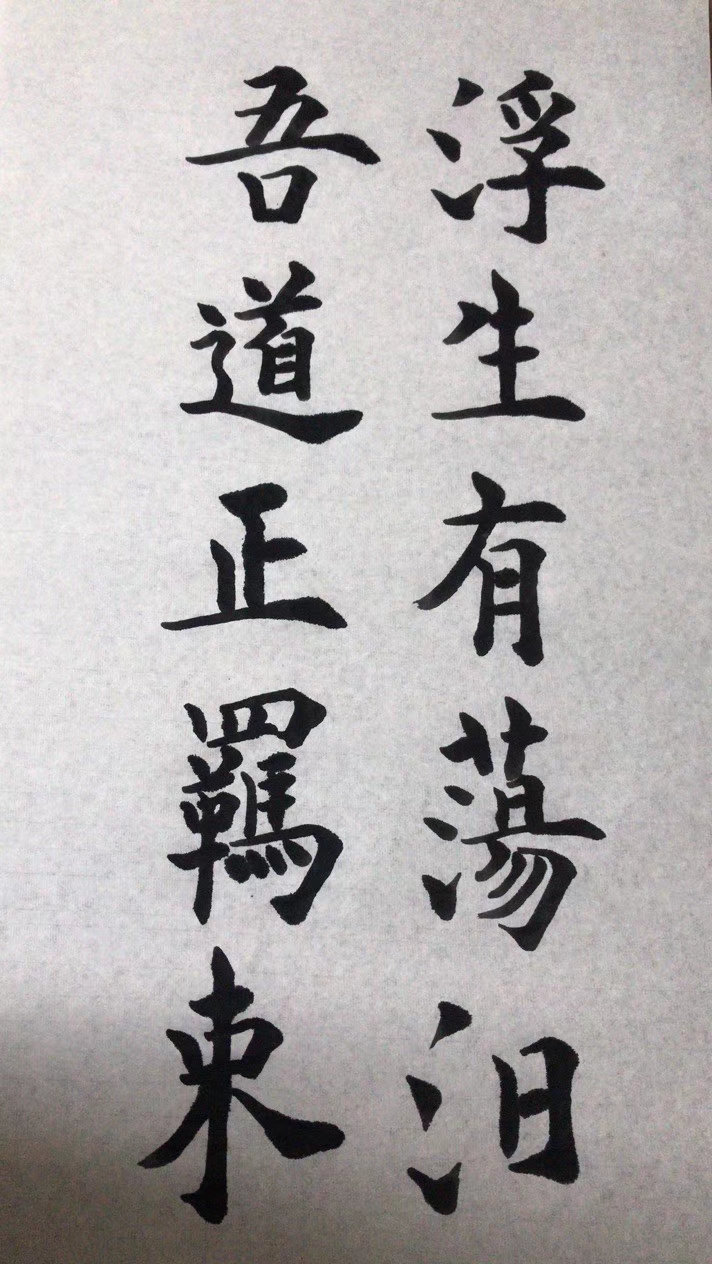 浮生有蕩汩
吾道正羈束